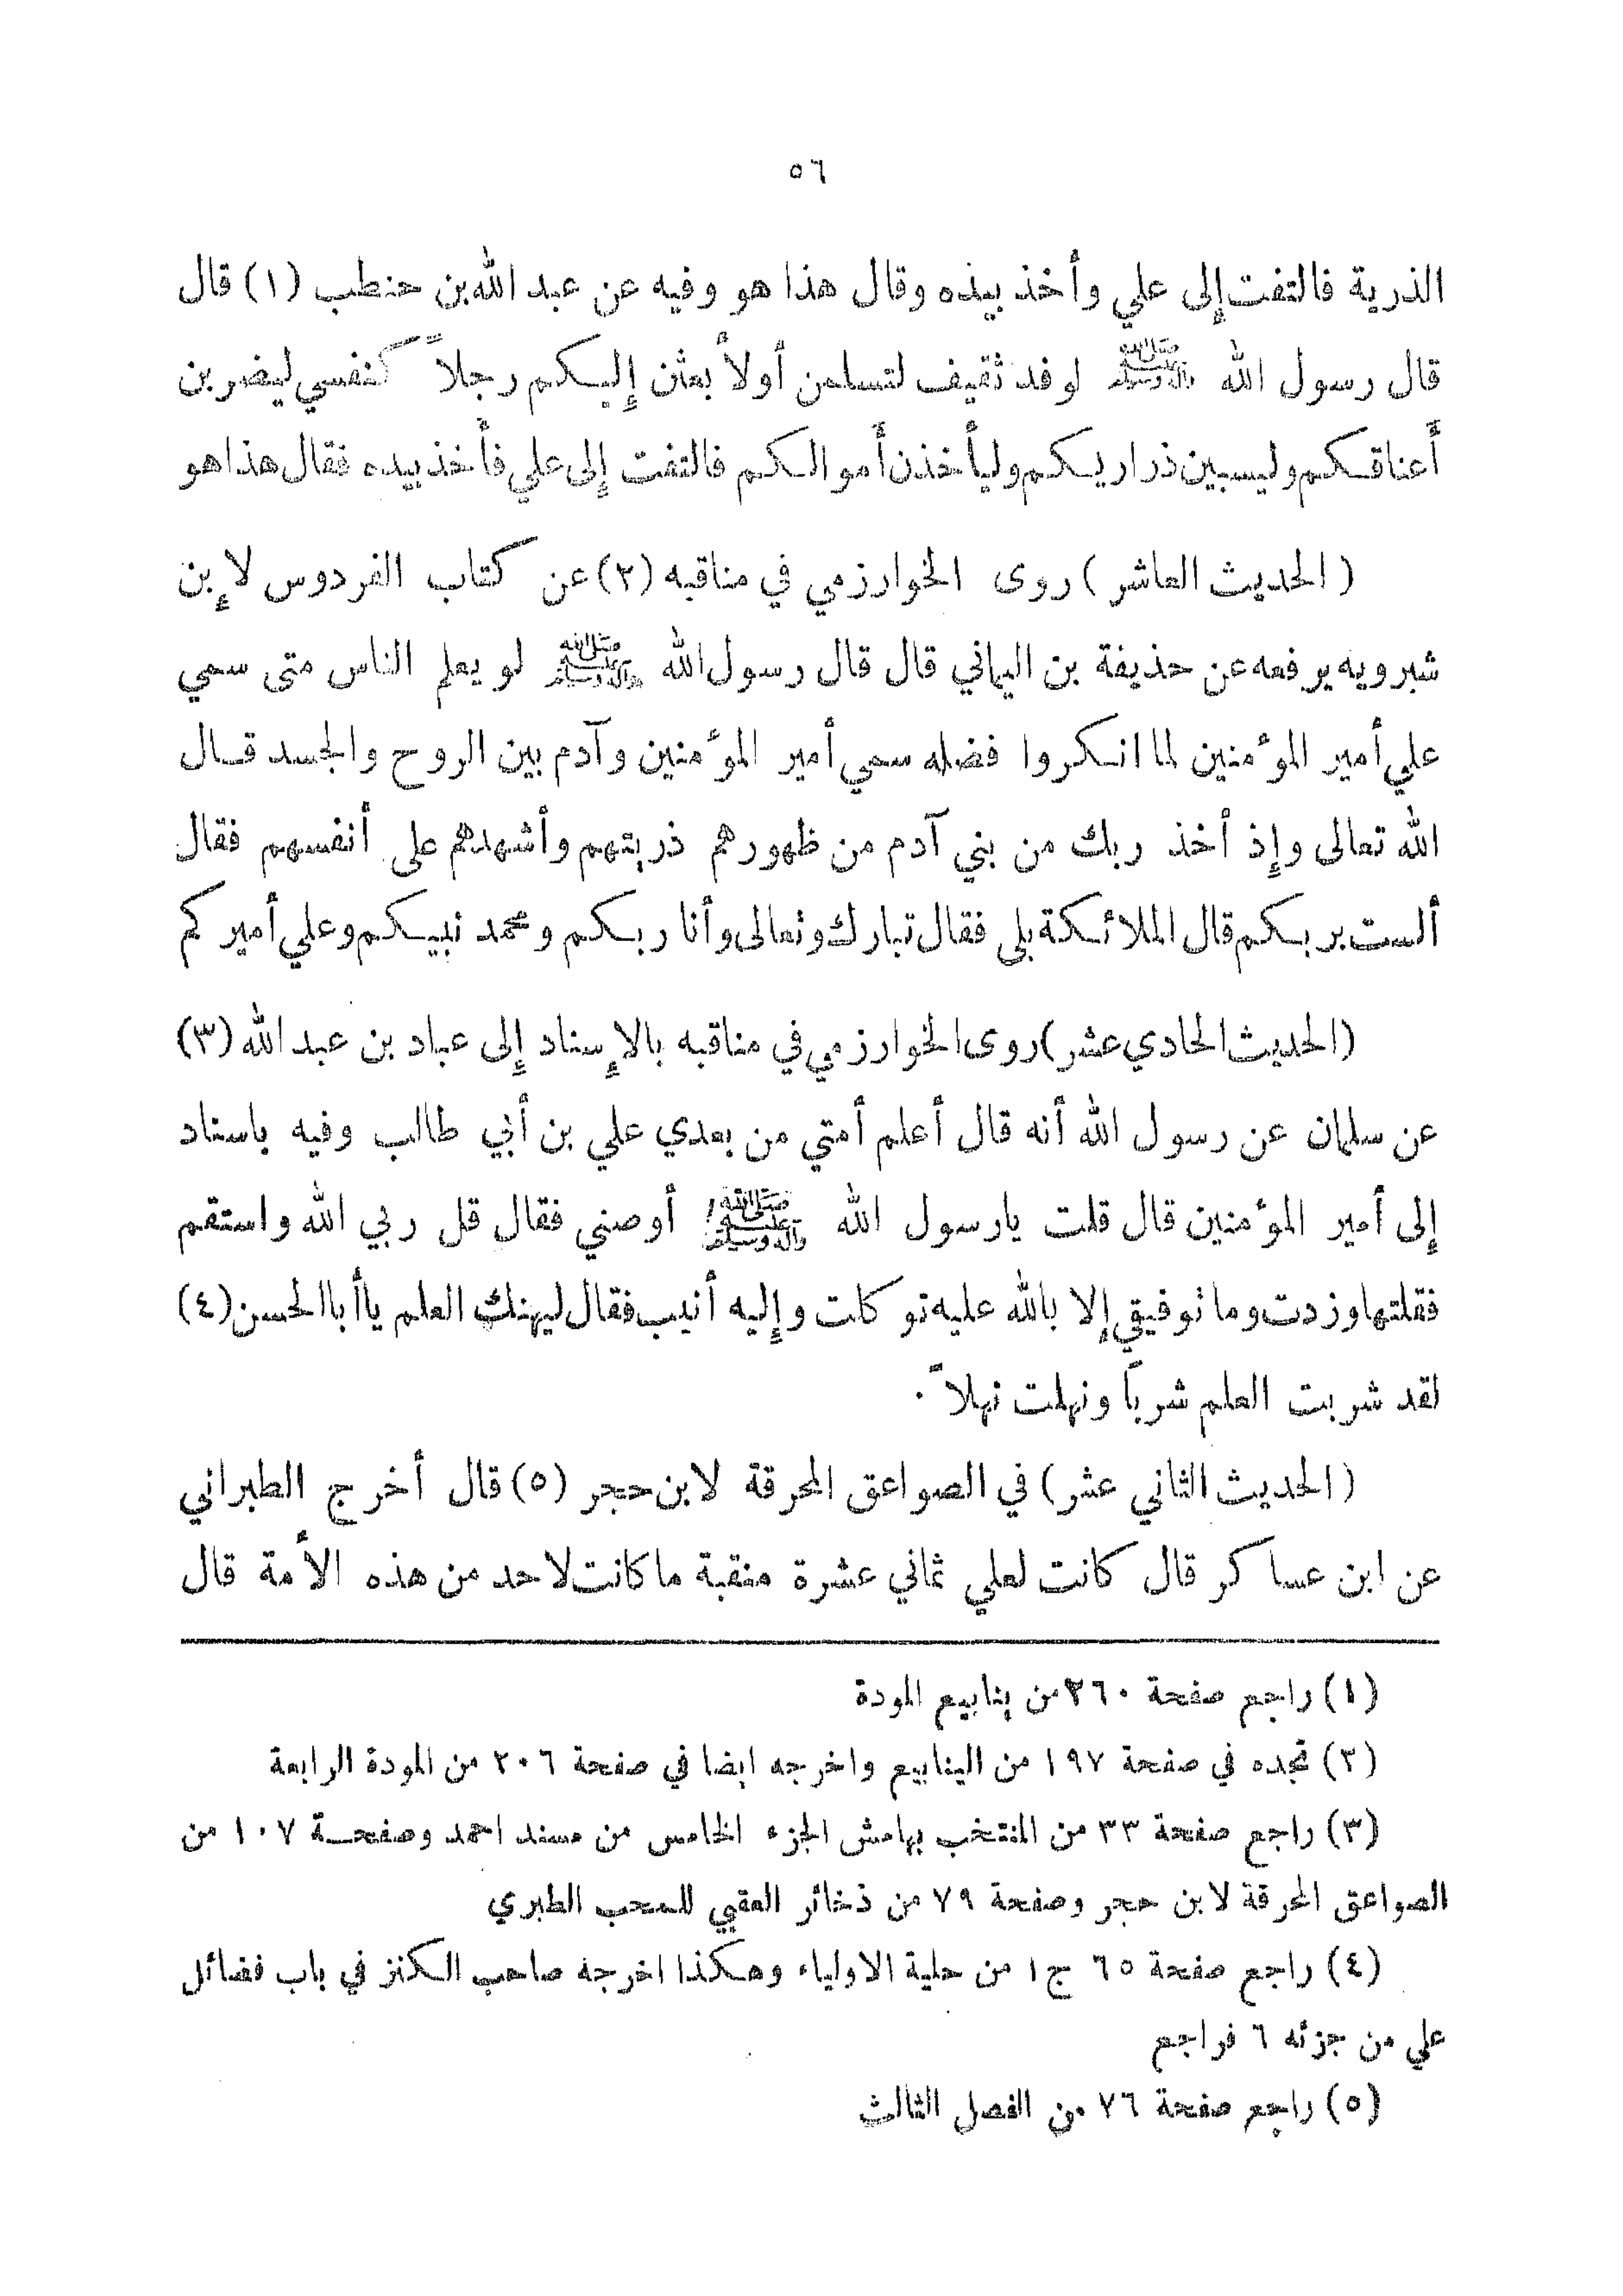 ٥٦
الذرية فالتفت إلى علي وأخذ بيده وقال هذا هو وفيه عن عبد الله بن حنطب (١) قال
قال رسول الله صلى الله عليه وآله وسلم لوفد ثقيف لتسلمن أو لأبعثن إليكم رجلاً كنفسي ليضربن
أعناقكم وليسبين ذراريكم وليأخذن أموالكم فالتفت إلى علي فأخذ بيده فقال هذا هو
( الحديث العاشر ) روى الخوارزمي في مناقبه (٢) عن كتاب الفردوس لإبن
شبرويه يرفعه عن حذيفة بن اليماني قال قال رسول الله صلى الله عليه وآله وسلم لو يعلم الناس متى سمي
علي أمير المؤمنين لما انكروا فضله سمي أمير المؤمنين وآدم بين الروح والجسد قال
الله تعالى وإذ أخذ ربك من بني آدم من ظهورهم ذريتهم وأشهدهم على أنفسهم فقال
ألست بربكم قال الملائكة بلى فقال تبارك وتعالى وأنا ربكم ومحمد نبيكم وعلي أميركم
(الحديث الحادي عشر) روى الخوارزمي في مناقبه بالإسناد إلى عباد بن عبد الله (٣)
عن سلمان عن رسول الله أنه قال أعلم أمتي من بعدي علي بن أبي طالب وفيه باسناد
إلى أمير المؤمنين قال قلت يارسول الله صلى الله عليه وآله وسلم أوصني فقال قل ربي الله واستقم
فقلتها وزدت وما توفيقي إلا بالله عليه توكلت وإليه أنيب فقال ليهنك العلم ياأبا الحسن (٤)
لقد شربت العلم شرباً ونهلت نهلاً .
(الحديث الثاني عشر) في الصواعق المحرقة لابن حجر (٥) قال أخرج الطبراني
عن ابن عساكر قال كانت لعلي ثماني عشرة منقبة ما كانت لاحد من هذه الأمة قال
(١) راجع صفحة ٢٦٠ من ينابيع المودة
(٢) تجده في صفحة ١٩٧ من الينابيع واخرجه ايضا في صفحة ٢٠٦ من المودة الرابعة
(٣) راجع صفحة ٣٣ من المنتخب بهامش الجزء الخامس من مسند احمد وصفحة ١٠٧ من
الصواعق المحرقة لابن حجر وصفحة ٧٩ من ذخائر العقبي للمحب الطبري
(٤) راجع صفحة ٦٥ ج١ من حلية الاولياء وهكذا اخرجه صاحب الكنز في باب فضائل
علي من جزئه ٦ فراجع
(٥) راجع صفحة ٧٦ من الفصل الثالث